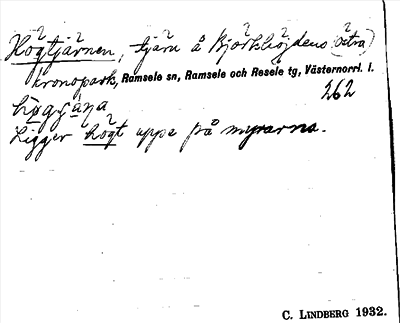 Högtjärnen, tjärn å Björkhöjdens (Östra)
kronopark, Ramsele sn, Ramsele och Resele tg, Västernorrl. l.
262
Ligger högt uppe på myrarna.
C. LINDBERG 1932.